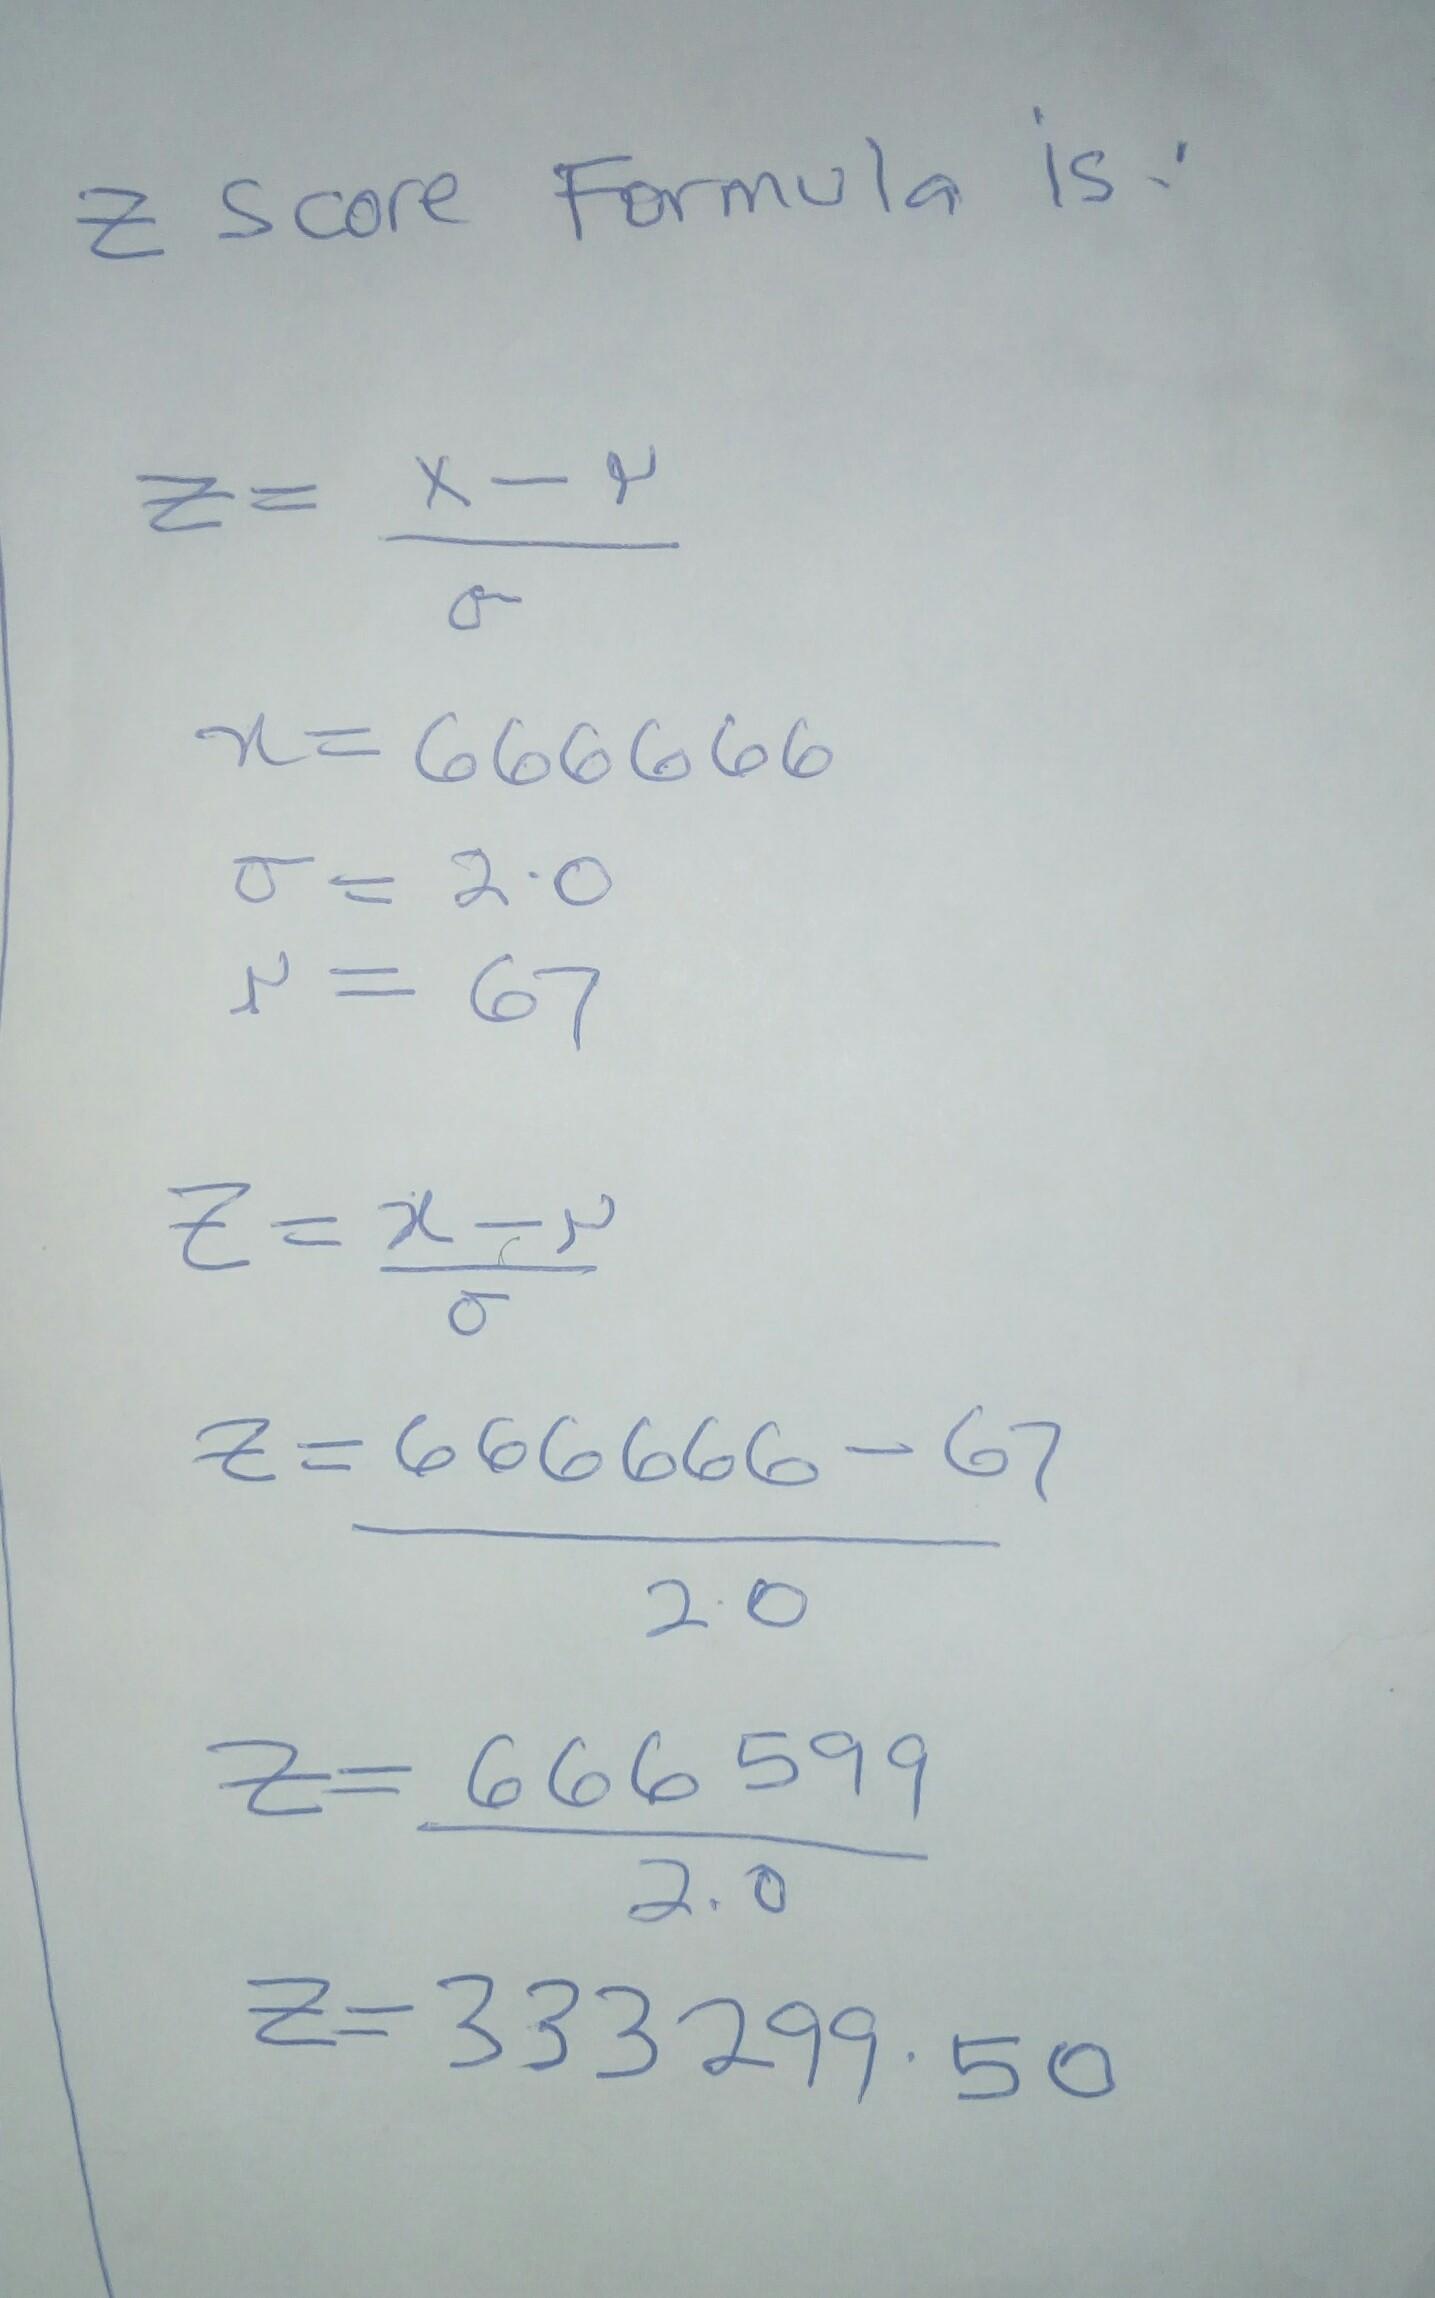 z score Formula is:
z = x - μ
σ
x = 666666
σ = 2.0
μ = 67
z = x - μ
σ
z = 666666 - 67
2.0
z = 666599
2.0
z = 333299.50